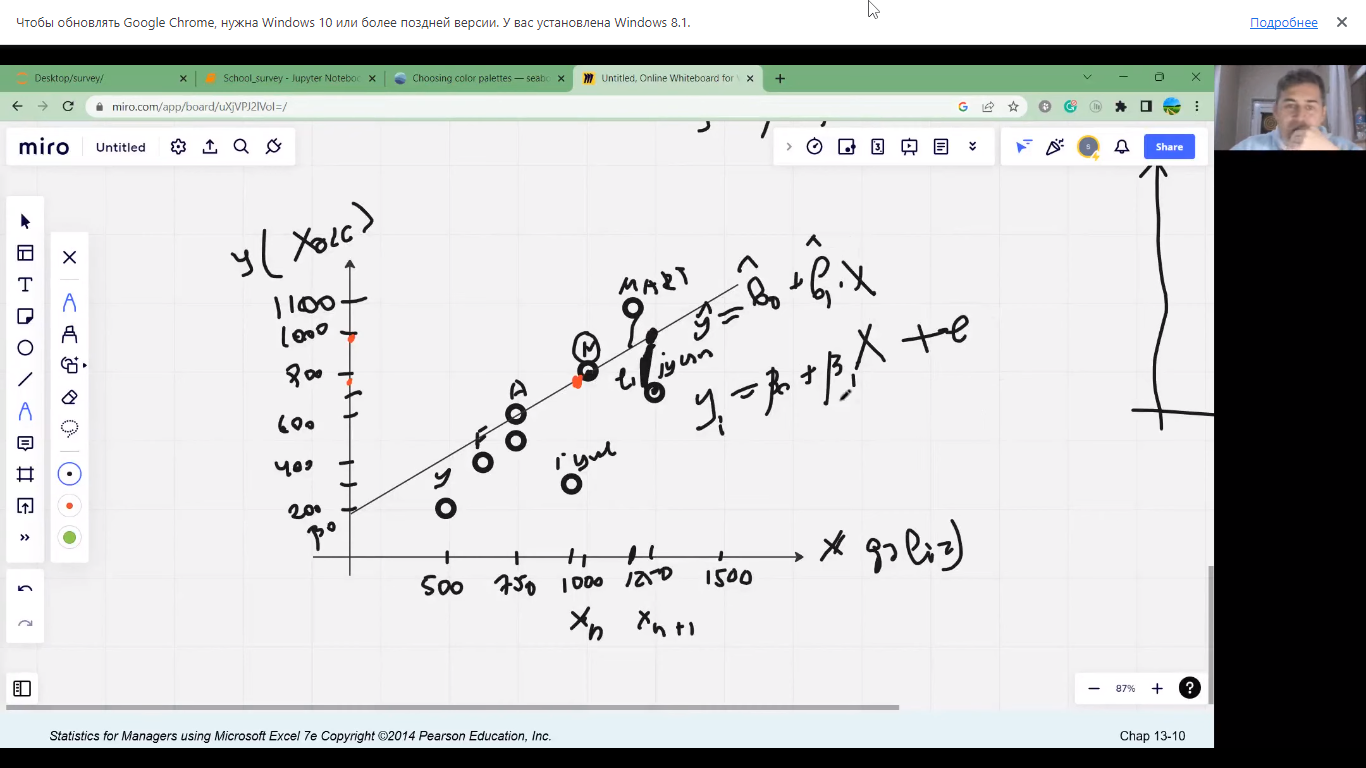 Чтобы обновлять Google Chrome, нужна Windows 10 или более поздней версии. У вас установлена Windows 8.1.
Подробнее
Desktop/survey/
School_survey - Jupyter Noteboo
Choosing color palettes — seab
Untitled, Online Whiteboard for
miro.com/app/board/uXjVPJ2lVoI=/
miro
Untitled
Share
y(
MART
1100
1000
ŷ = β̂0 + β̂1·X
M
800
ei
iyun
yi = β0 + β1X + e
A
600
F
400
iyul
y
200
β0
X
500
750
1000
1250
1500
Xn
Xn+1
87%
Statistics for Managers using Microsoft Excel 7e Copyright ©2014 Pearson Education, Inc.
Chap 13-10